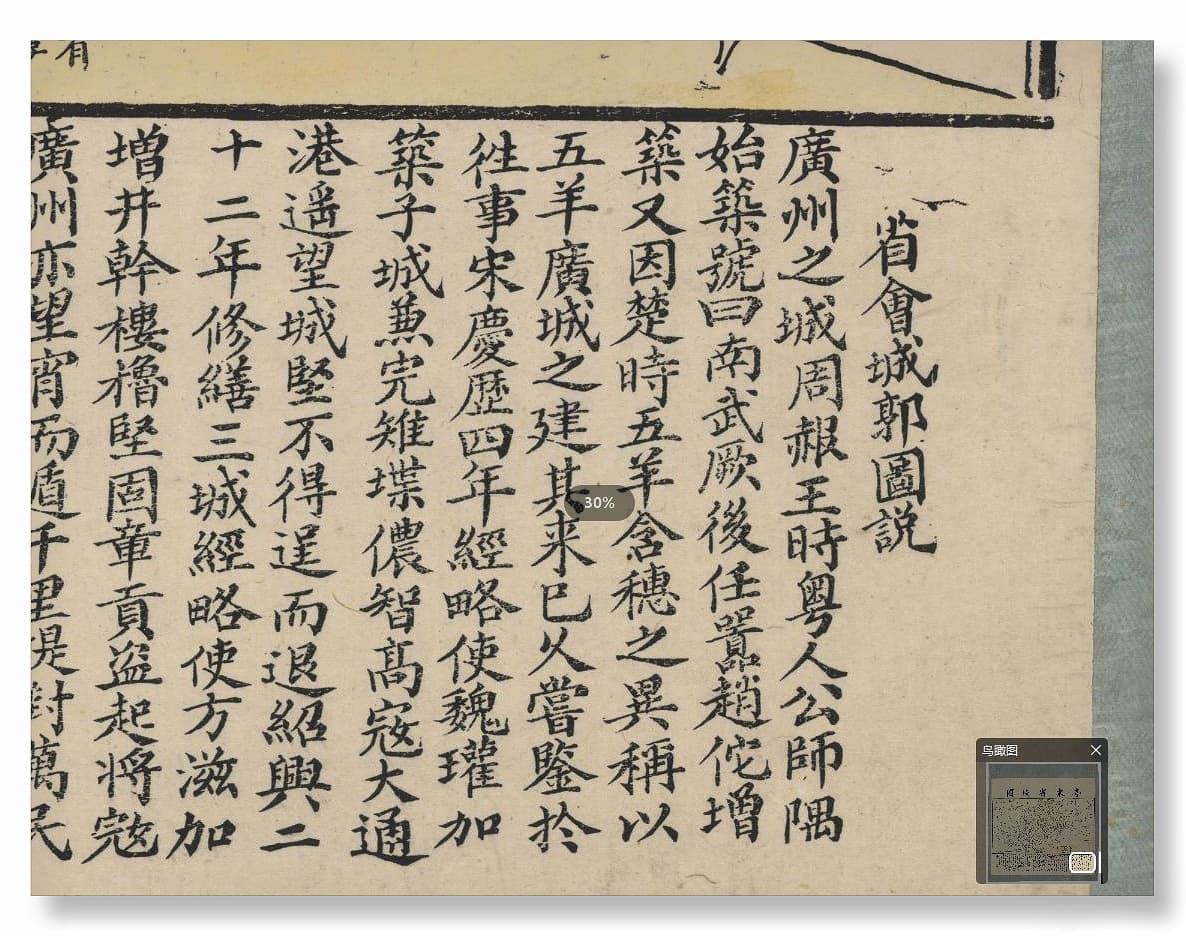 有
省會城郭圖説
廣州之城周赧王時粤人公師隅
始築號曰南武厥後任囂趙佗增
築又因楚時五羊含穗之異稱以
五羊廣城之建其来已久嘗鑒扵
徃事宋慶歷四年經略使魏瓘加
築子城兼完雉堞儂智髙宼大通
港遥望城堅不得逞而退紹興二
十二年修繕三城經略使方滋加
增井幹樓櫓堅固章貢盗起将宼
廣州亦望宵而遁千里萬民
30%
鸟瞰图